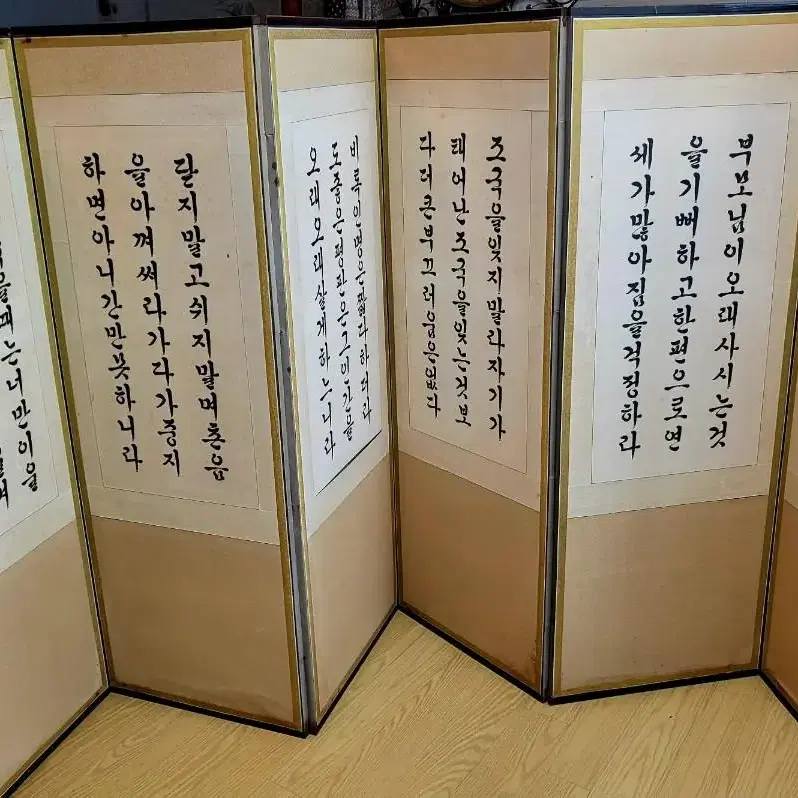 부모님이오래사시는것
을기뻐하고한편으로연
세가많아짐을걱정하라
조국을잊지말라자기가
태어난조국을잊는것보
다더큰부끄러움은없다
비록인명은짧다하더라
도좋은평판은그인간을
오래오래살게하는니라
닫지말고쉬지말며촌음
을아껴써라가다가중지
하면아니간만못하니라